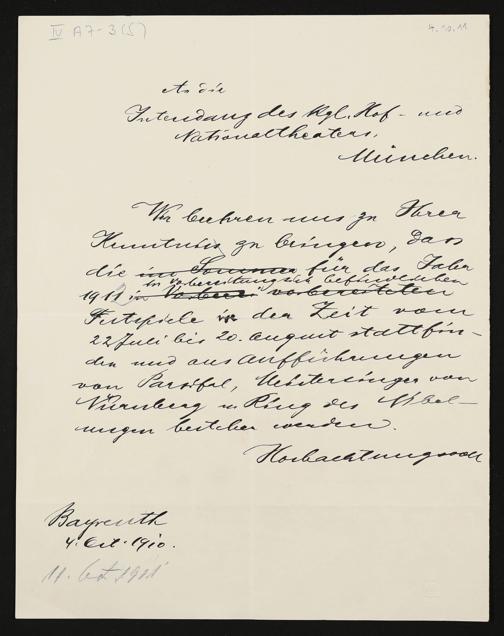 IV A7-3(5)
4.10.11
An die
Intendanz des Kgl. Hof- und
Nationaltheaters,
München.
Wir beehren uns zu Ihrer
Kenntnis zu bringen, dass
die im Sommer für das Jahr
in Vorbereitung sich befindlichen
1911 in vorbereiteten
Festspiele in der Zeit vom
22 Juli bis 20. August stattfin-
den und aus Aufführungen
von Parsifal, Meistersinger von
Nürnberg u. Ring des Nibel-
ungen bestehen werden.
Hochachtungsvoll
Bayreuth
4. Oct. 1910.
11. Oct 1911